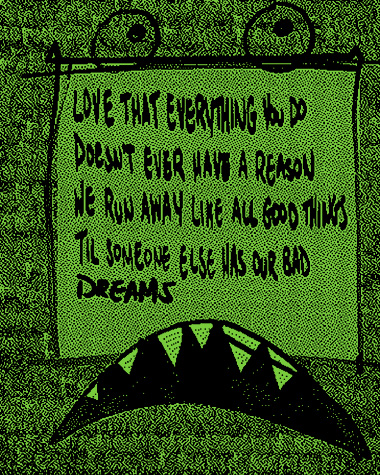 LOVE THAT EVERYTHING YOU DO
DOESN'T EVER HAVE A REASON
WE RUN AWAY LIKE ALL GOOD THINGS
TIL SOMEONE ELSE HAS OUR BAD
DREAMS